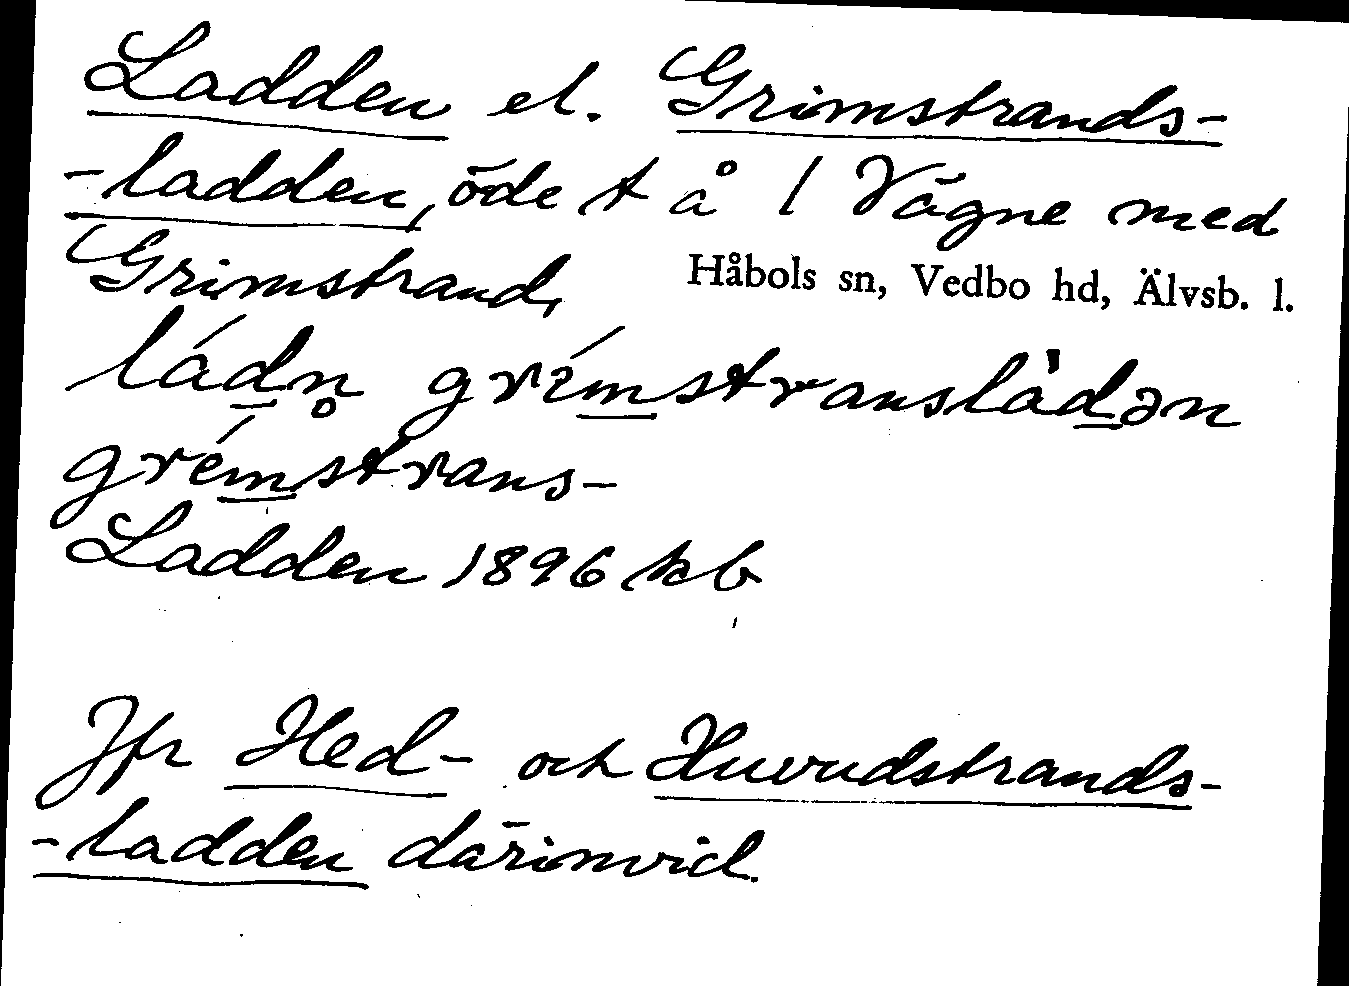 Ladden el. Grimstrands-
-ladden, öde t å 1 Vägne med
Grimstrand, Håbols sn, Vedbo hd, Älvsb. l.
ládn̥ grímstranslàdən
grémstrans-
Ladden 1896 kb
Jfr Hed- och Huvudstrands-
-ladden därinvid.